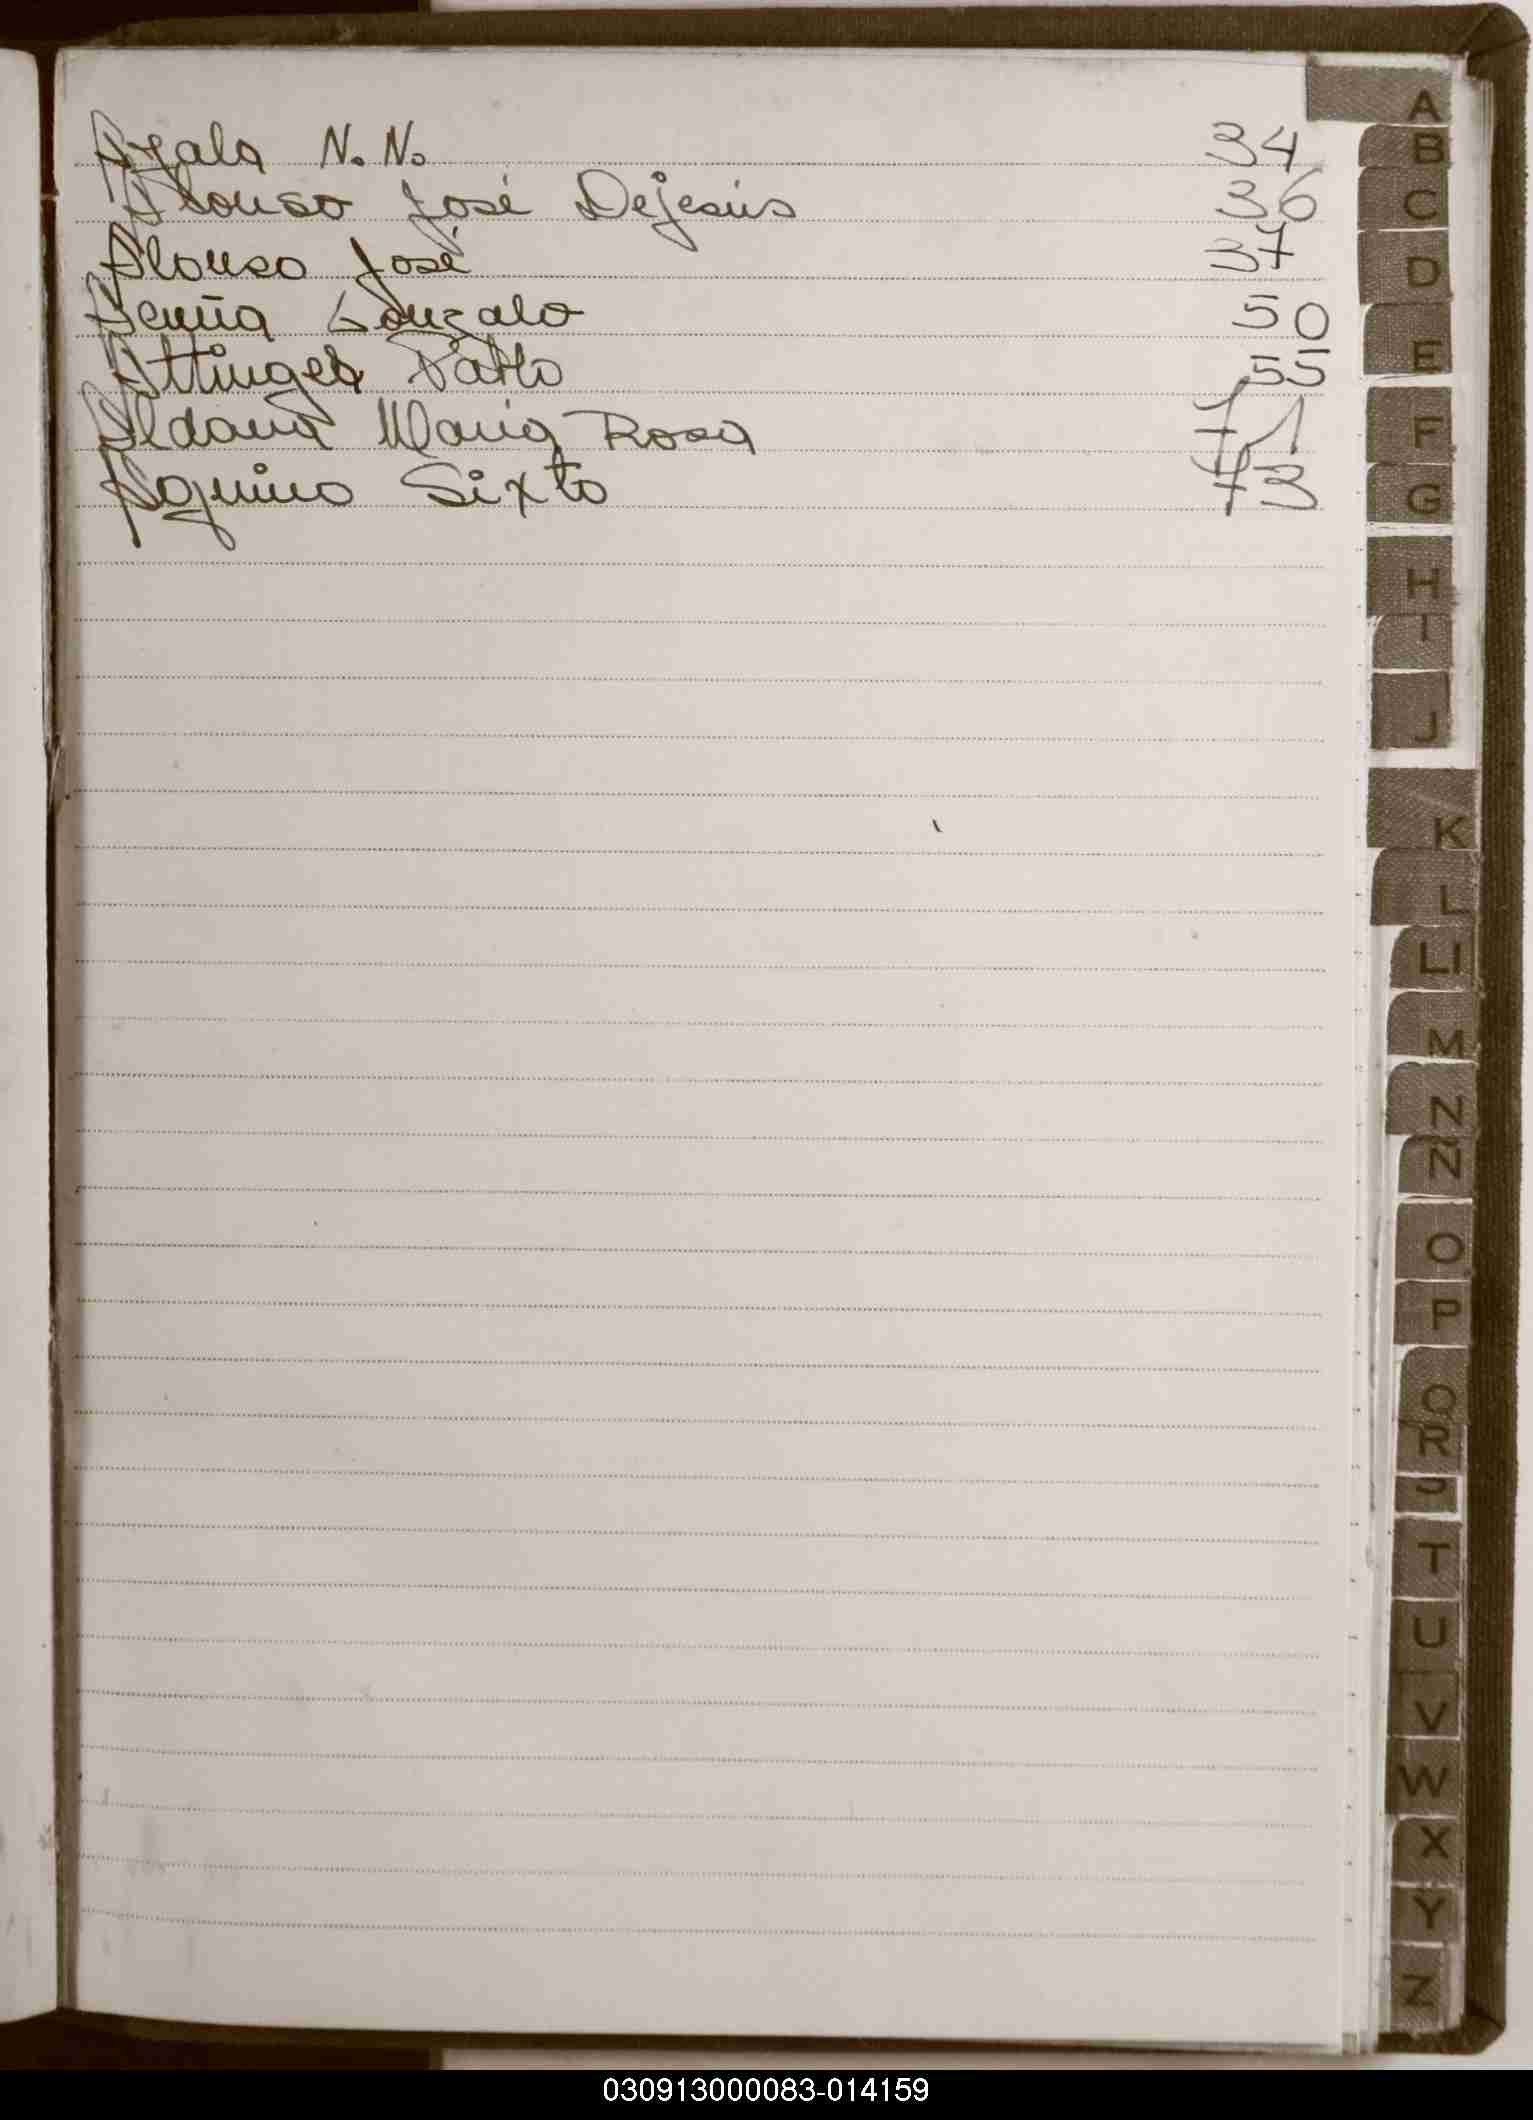 Ayala N. N. 34
Alonso José Dejesús 36
Alonso José 37
Acuña Gonzalo 50
Attinger Pablo 55
Aldana María Rosa 71
Aquino Sixto 73
A
B
C
D
E
F
G
H
I
J
K
L
Ll
M
N
Ñ
O
P
Q
R
T
U
V
W
X
Y
Z
030913000083-014159